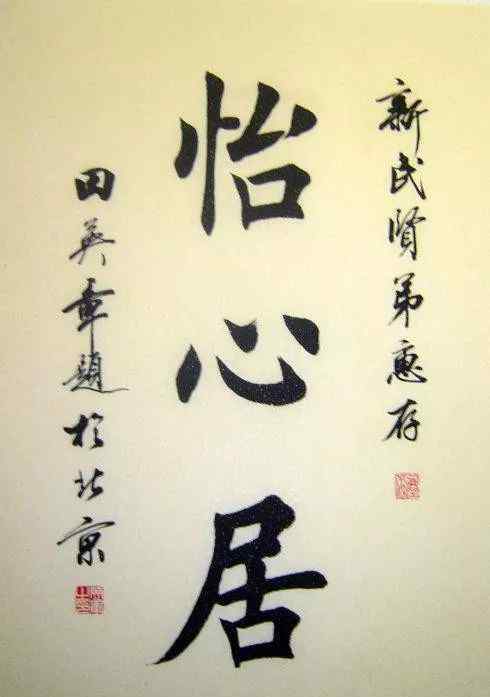 新民賢弟惠存
怡心居
田英章題於北京